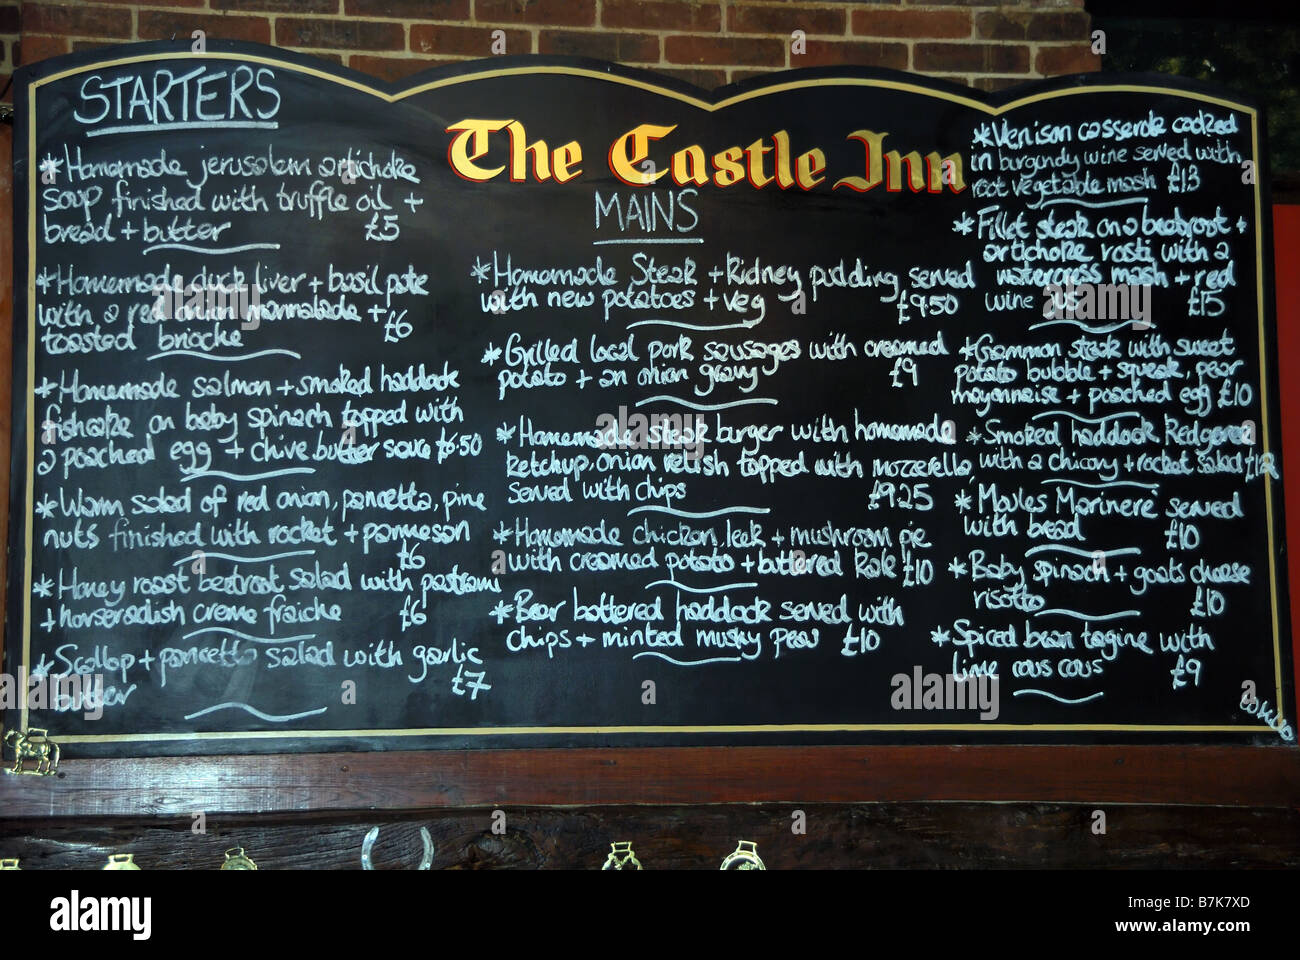 STARTERS
* Homemade jerusalem artichoke
soup finished with truffle oil +
bread + butter £5
* Homemade duck liver + basil pate
with a red onion marmalade +
toasted brioche £6
* Homemade salmon + smoked haddock
fishcake on baby spinach topped with
a poached egg + chive butter sauce £6.50
* Warm salad of red onion, pancetta, pine
nuts finished with rocket + parmesan
£6
* Honey roast beetroot salad with pastrami
+ horseradish creme fraiche £6
* Scallop + pancetta salad with garlic
butter £7
The Castle Inn
MAINS
* Homemade Steak + Kidney pudding served
with new potatoes + veg £9.50
* Grilled local pork sausages with creamed
potato + an onion gravy £9
* Homemade steak burger with homemade
ketchup, onion relish topped with mozzerella
served with chips £9.25
* Homemade chicken, leek + mushroom pie
with creamed potato + buttered Kale £10
* Beer battered haddock served with
chips + minted mushy peas £10
* Venison casserole cooked
in burgundy wine served with
root vegetable mash £13
* Fillet steak on a beetroot +
artichoke rosti with a
watercress mash + red
wine jus £15
* Gammon steak with sweet
potato bubble + squeak, pear
mayonnaise + poached egg £10
* Smoked haddock Kedgeree
with a chicory + rocket salad £12
* Moules Marinere served
with bread £10
* Baby spinach + goats cheese
risotto £10
* Spiced bean tagine with
lime cous cous £9
alamy
alamy stock photo
B7K7XD
www.alamy.com